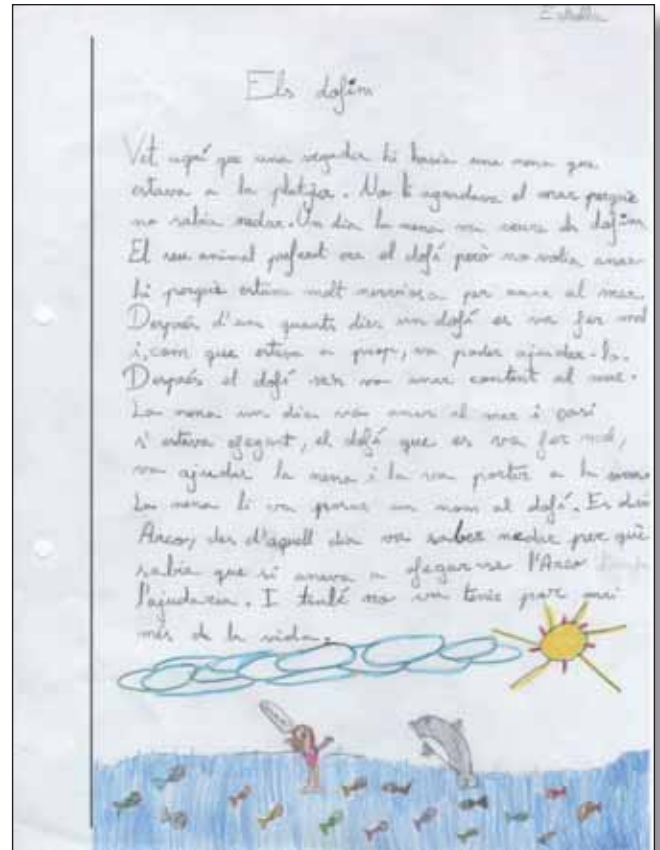 Estrella
Els dofins
Vet aquí que una vegada hi havia una nena que
estava a la platja. No li agradava el mar perquè
no sabia nedar. Un dia la nena va veure els dofins
El seu animal preferit era el dofí però no volia anar
hi perquè estava molt nerviosa per anar al mar.
Després d'uns quants dies un dofí es va fer mal
i, com que estava a prop, va poder ajudar-lo.
Després el dofí se'n va anar content al mar.
La nena un dia va anar al mar i casi
s'estava ofegant, el dofí que es va fer mal,
va ajudar la nena i la va portar a la
La nena li va posar un nom al dofí. Es deia
Arco, des d'aquell dia va saber nedar per què
sabia que si anava a ofegar-se l'Arco
l'ajudaria. I també no va tenir por mai
més de la vida.